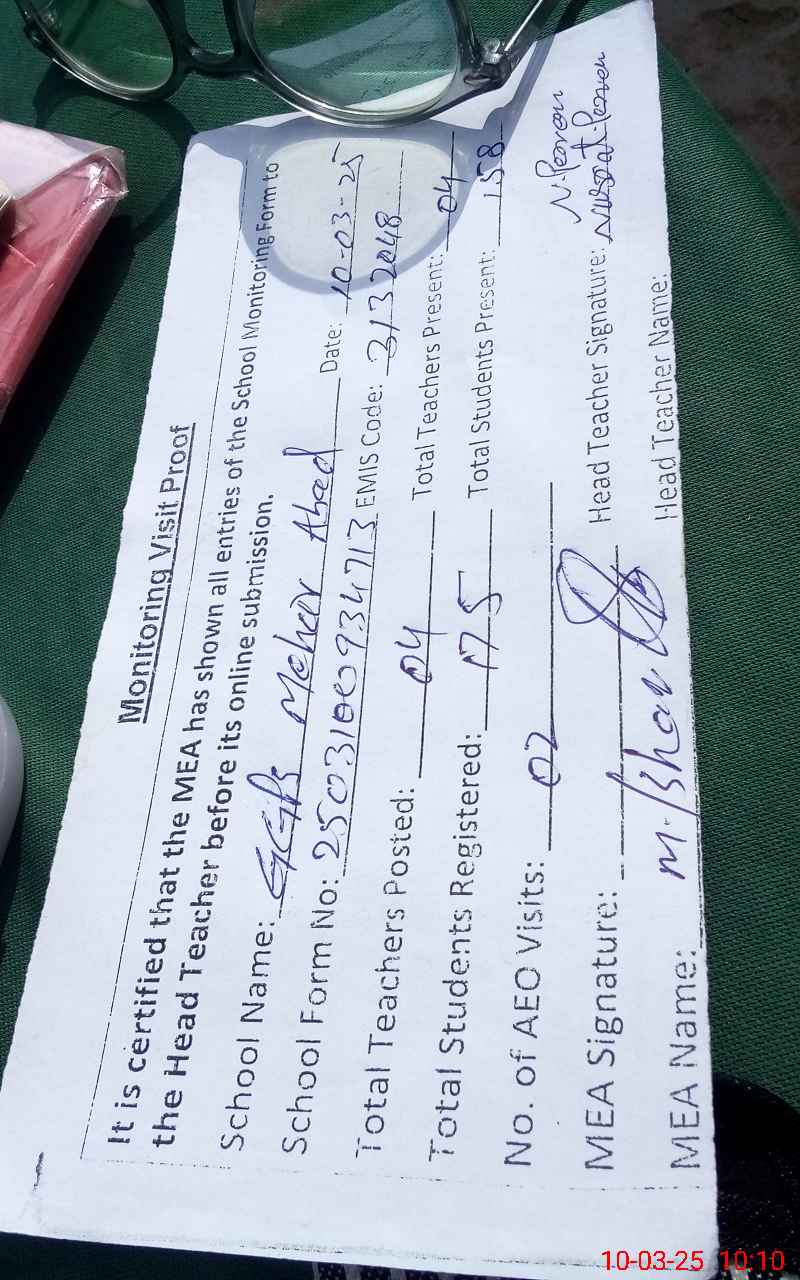 Monitoring Visit Proof
It is certified that the MEA has shown all entries of the School Monitoring Form to
the Head Teacher before its online submission.
School Name: GGPS Mehar Abad Date: 10-03-25
School Form No: 2503100934713 EMIS Code: 3132048
Total Teachers Posted: 04 Total Teachers Present: 04
Total Students Registered: 175 Total Students Present: 158
No. of AEO Visits: 02
MEA Signature: Head Teacher Signature: N.Perveen
MEA Name: Head Teacher Name: Nusrat Perveen
10-03-25 10:10